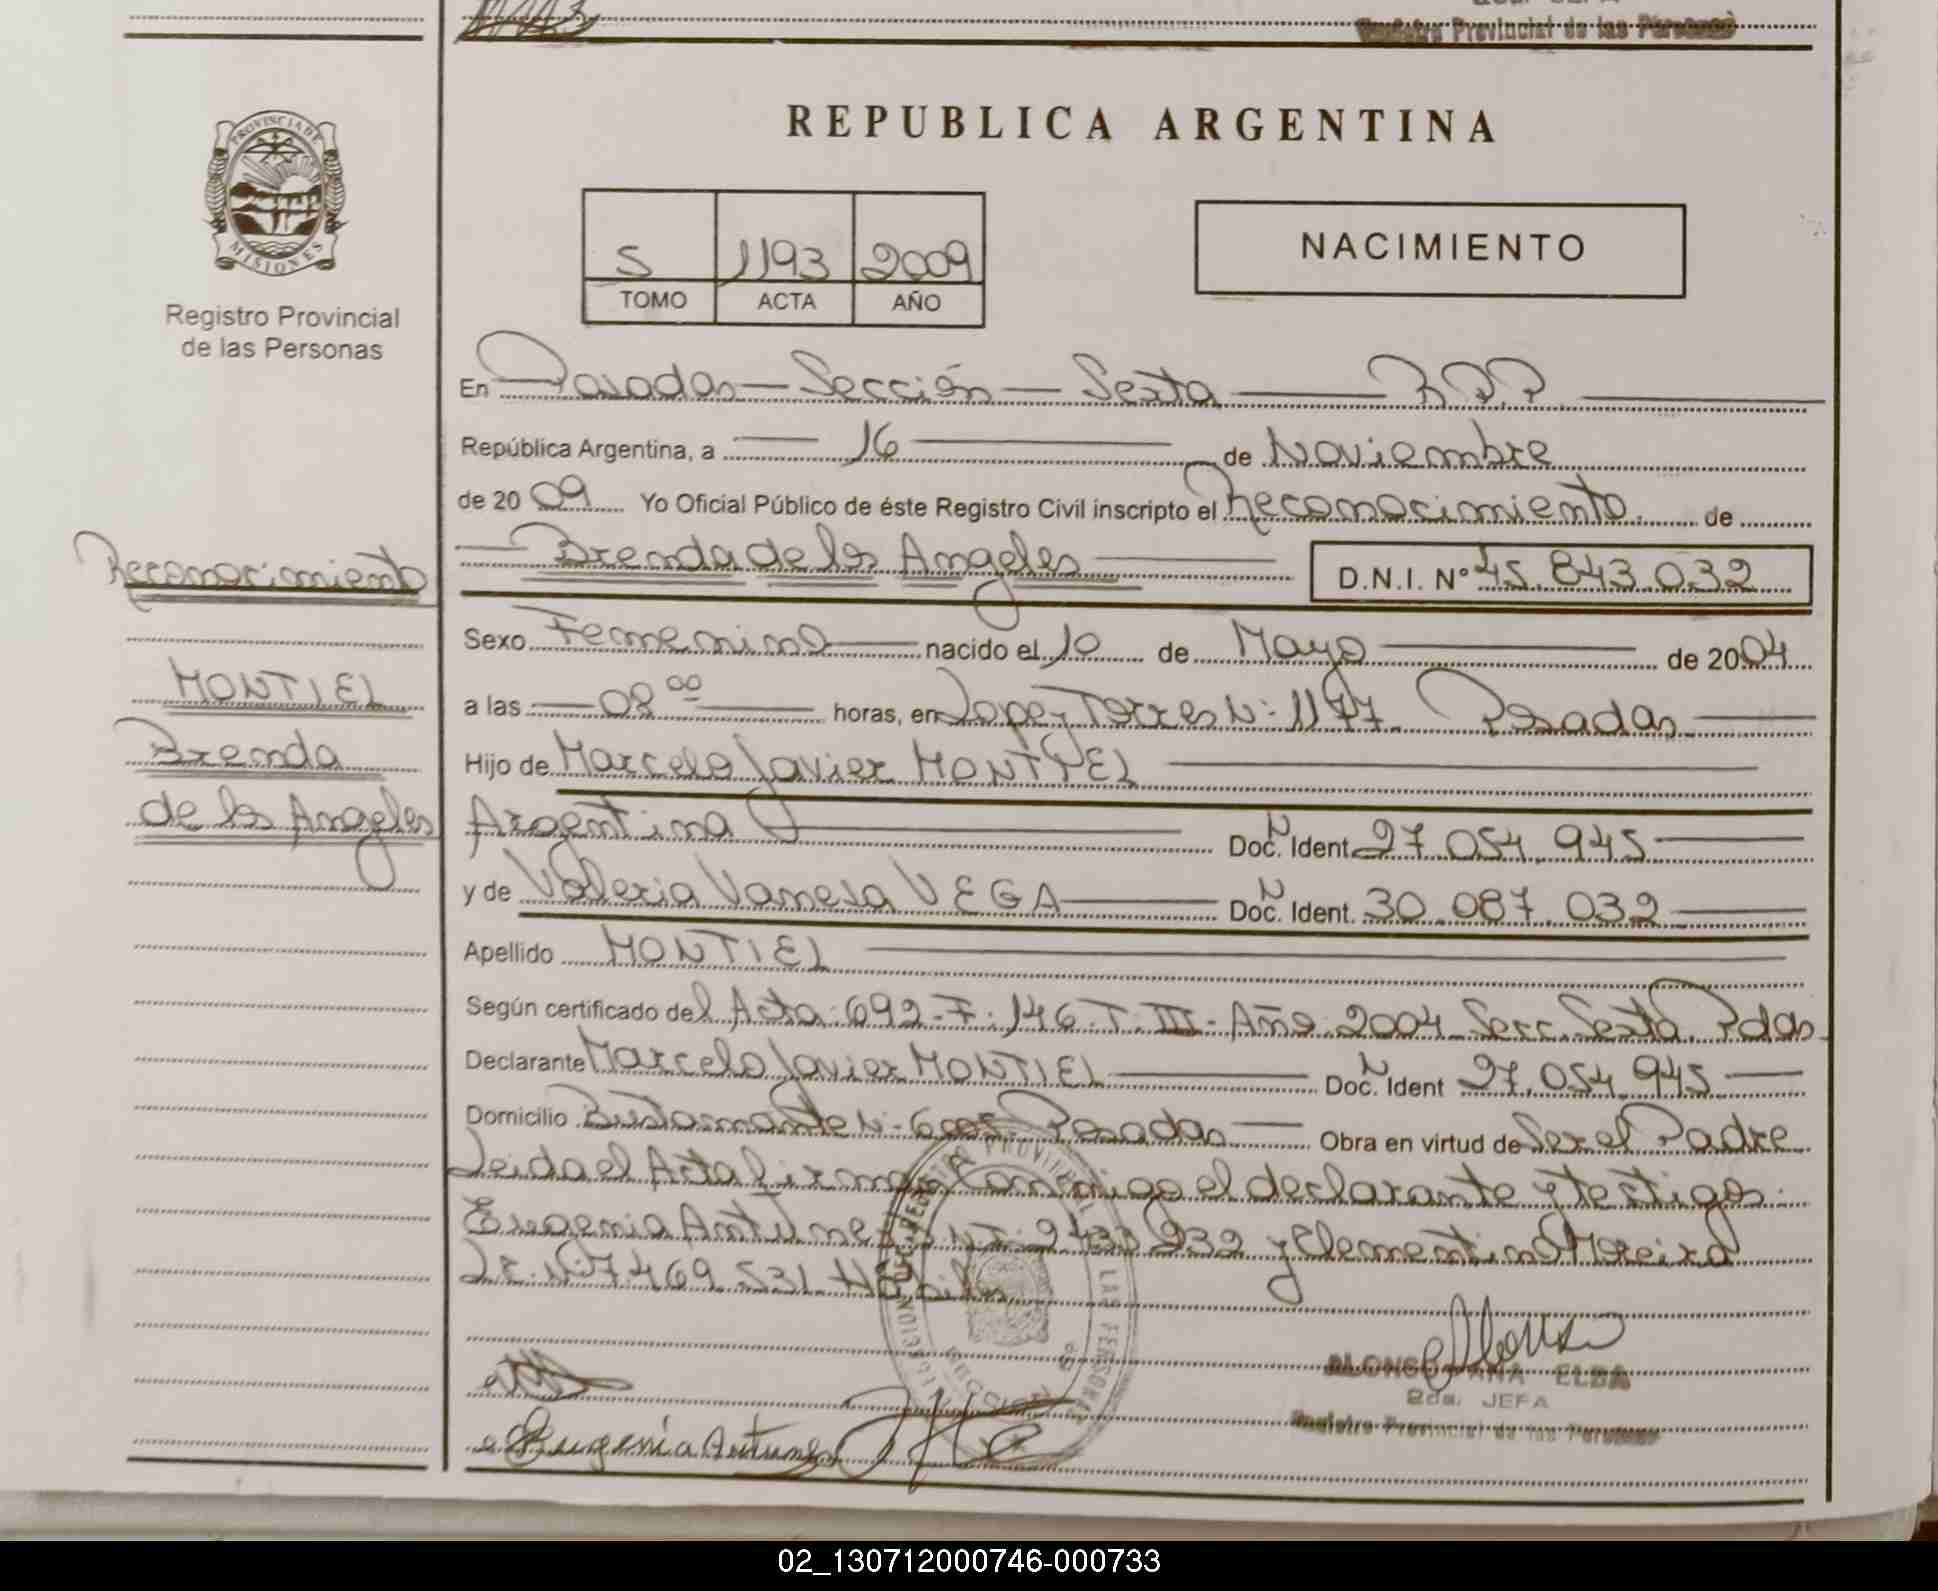 Registro Provincial de las Personas
REPUBLICA ARGENTINA
PROVINCIA DE
MISIONES
Registro Provincial
de las Personas
S 1193 2009
TOMO ACTA AÑO
NACIMIENTO
En Posadas - Sección - Sexta R.P.P.
República Argentina, a 16 de Noviembre
de 2009 Yo Oficial Público de éste Registro Civil inscripto el Reconocimiento de
Brenda de los Angeles D.N.I. Nº 45.843.032
Reconocimiento
MONTIEL
Brenda
de los Angeles
Sexo Femenino nacido el 10 de Mayo de 2004
a las 08 00 horas, en Lopez Torres Nº 1177. Posadas
Hijo de Marcelo Javier MONTIEL
Argentina Doc. Ident. N 27.054.945
y de Valeria Vanesa VEGA Doc. Ident. N 30.087.032
Apellido MONTIEL
Según certificado del Acta. 692-F.146-T.III-Año 2004 Secc. Sexta. Pdas
Declarante Marcelo Javier MONTIEL Doc. Ident N 27.054.945
Domicilio Bustamante Nº Posadas Obra en virtud de Ser el Padre
Leida el Acta firman conmigo el declarante y testigos.
Eugenia Antunes y Clementino Moreira
7469.531 Hábiles
ALONSO ANA ELBA
2da. JEFA
Registro Provincial de las Personas
Eugenia Antunes
02_130712000746-000733